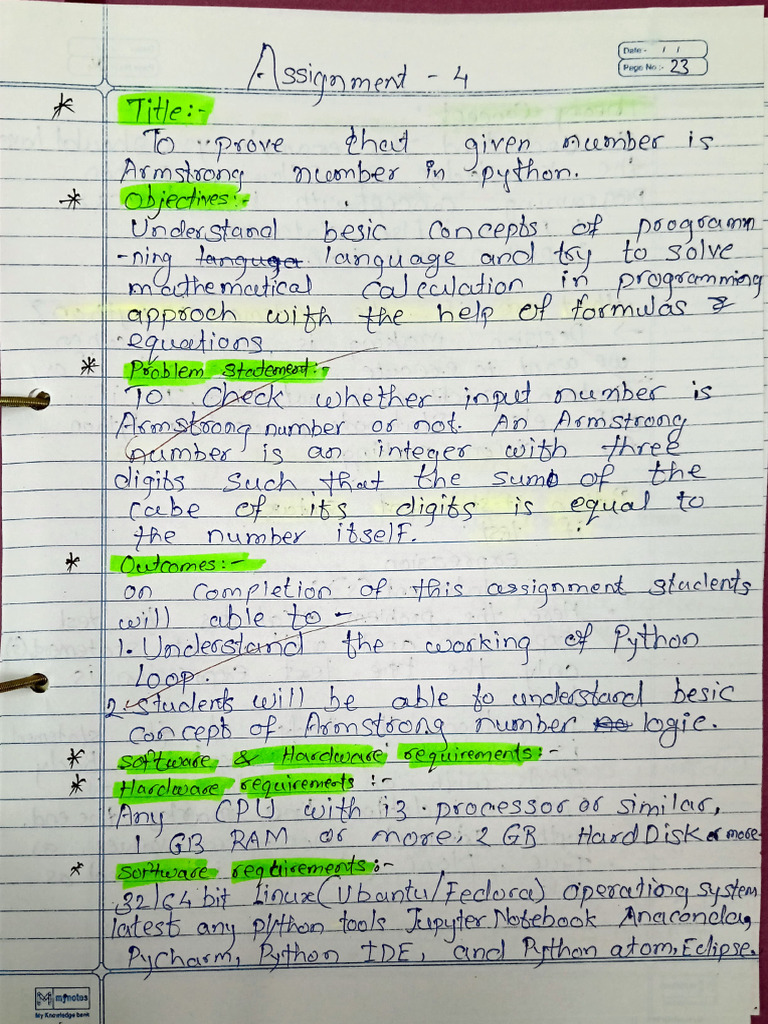 Date - / /
Assignment - 4
Page No :- 23
* Title:-
To prove that given number is
Armstrong number in python.
* Objectives:-
Understand besic concepts of programm
-ning language and try to solve
mathematical calculation in programming
approch with the help of formulas &
equations.
* Problem statement:-
To Check whether input number is
Armstrong number or not. An Armstrong
number is an integer with three
digits such that the sum of the
cube of its digits is equal to
the number itself.
* Outcomes:-
on completion of this assignment students
will able to -
1. Understand the working of Python
Loop.
2. Students will be able to understand besic
concept of Armstrong number logic.
* software & Hardware requirements:-
* Hardware requirements :-
Any CPU with i3 processor or similar,
1 GB RAM or more, 2 GB Hard Disk or more
* software requirements:-
32/64 bit Linux (Ubantu/Fedora) operating system
latest any python tools Jupyter Notebook Anaconda,
Pycharm, Python IDE, and Python atom, Eclipse.
mynotes
My Knowledge bank